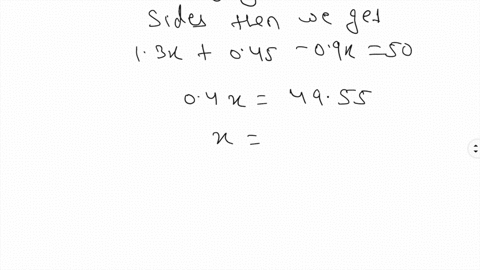 Sides then we get
1.3x + 0.45 - 0.9x = 50
0.4x = 49.55
x =